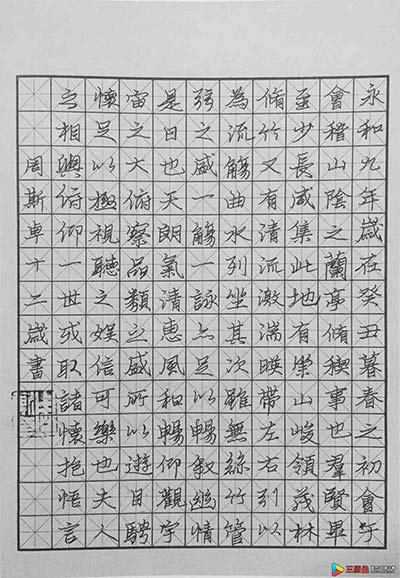 永和九年歲在癸丑暮春之初會于
會稽山陰之蘭亭脩稧事也羣賢畢
至少長咸集此地有崇山峻領茂林
脩竹又有清流激湍暎帶左右引以
為流觴曲水列坐其次雖無絲竹管
弦之盛一觴一詠亦足以暢敘幽情
是日也天朗氣清惠風和暢仰觀宇
宙之大俯察品類之盛所以遊目騁
懷足以極視聽之娛信可樂也夫人
之相與俯仰一世或取諸懷抱悟言
周斯卓十二歲書
三原色